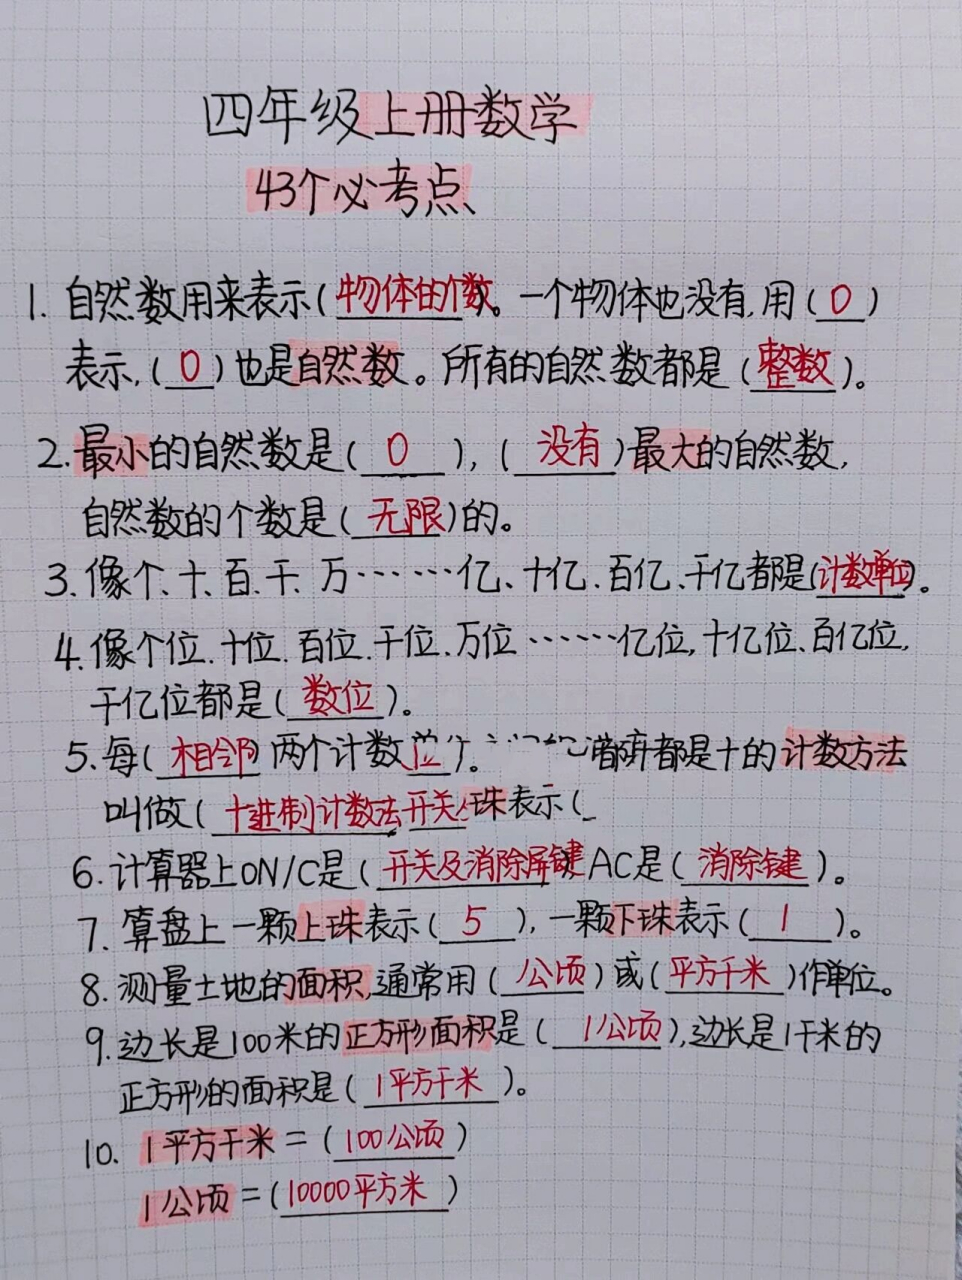 四年级上册数学
43个必考点
1. 自然数用来表示(物体的个数)。一个物体也没有,用(0)
表示,(0)也是自然数。所有的自然数都是(整数)。
2.最小的自然数是(0),(没有)最大的自然数,
自然数的个数是(无限)的。
3.像个、十、百、千、万……亿、十亿、百亿、千亿都是(计数单位)。
4.像个位、十位、百位、千位、万位……亿位,十亿位、百亿位,
千亿位都是(数位)。
5.每(相邻)两个计数 位)。 都是十的计数方法
叫做(十进制计数法 开关 珠表示(
6.计算器上ON/C是(开关及消除屏键)AC是(消除键)。
7.算盘上一颗上珠表示(5),一颗下珠表示(1)。
8.测量土地的面积,通常用(公顷)或(平方千米)作单位。
9.边长是100米的正方形面积是(1公顷),边长是1千米的
正方形的面积是(1平方千米)。
10. 1平方千米=(100公顷)
1公顷=(10000平方米)